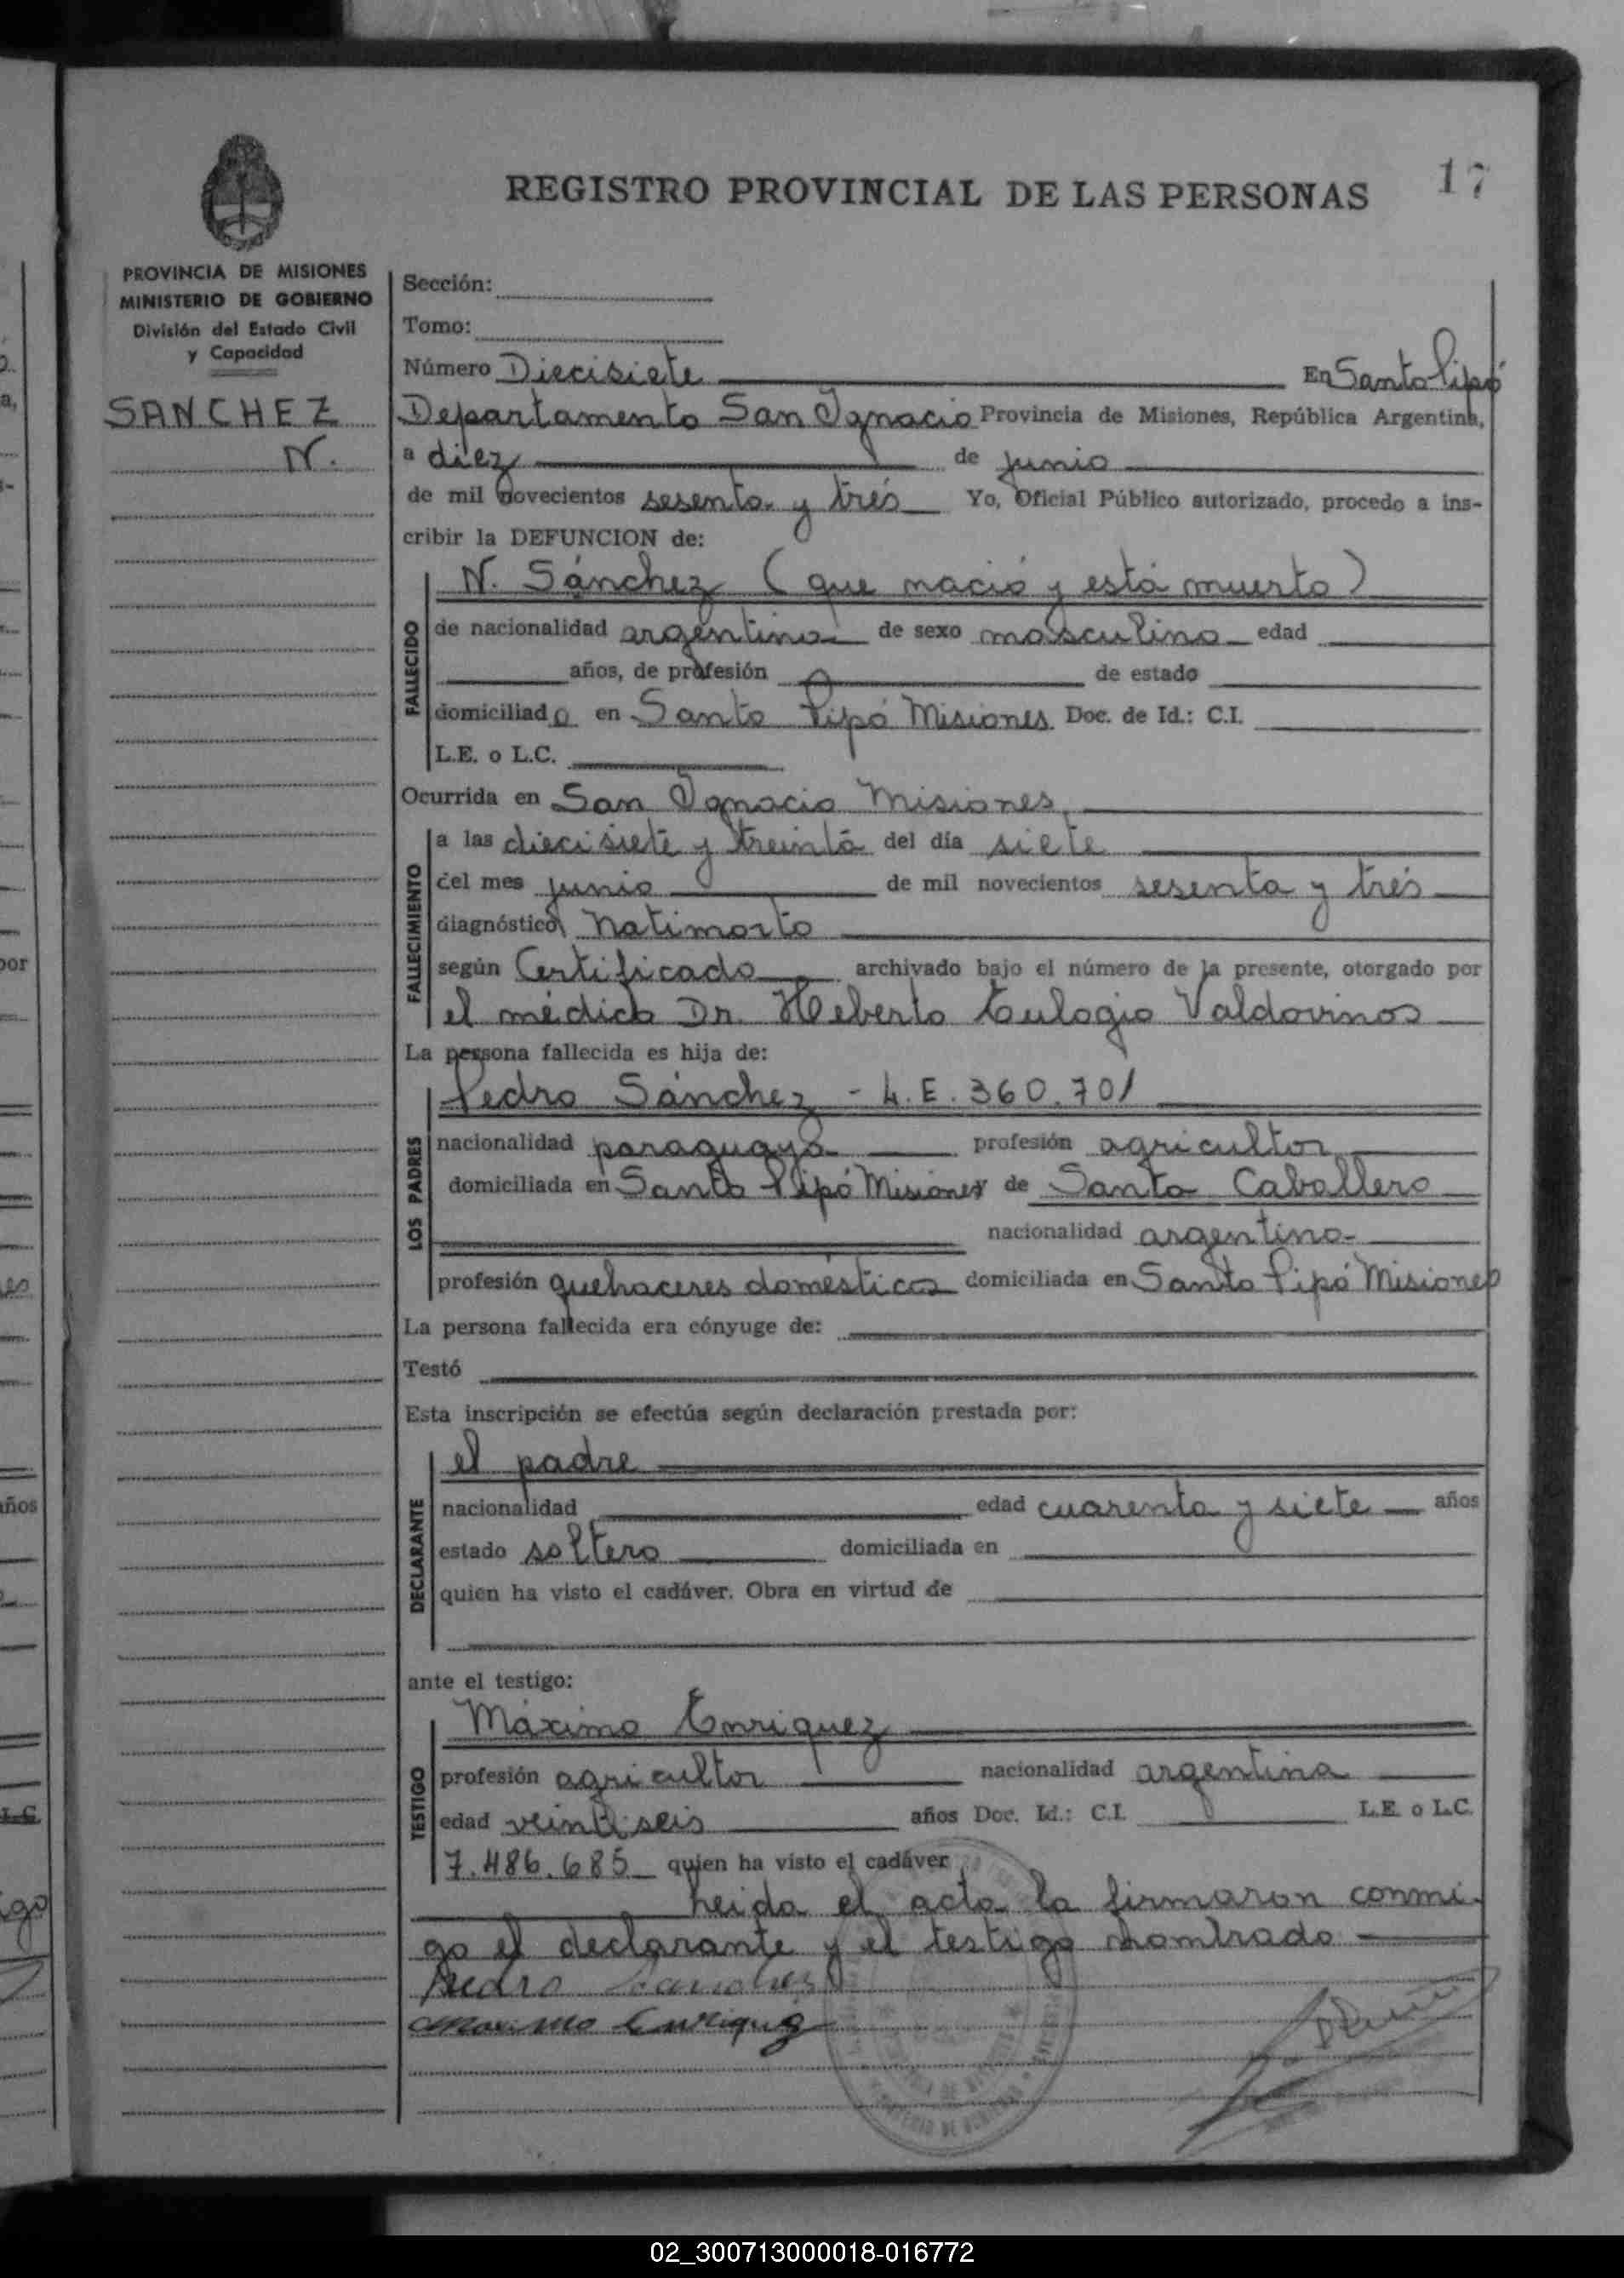 REGISTRO PROVINCIAL DE LAS PERSONAS
17
PROVINCIA DE MISIONES
MINISTERIO DE GOBIERNO
División del Estado Civil
y Capacidad
SANCHEZ
N.
Sección:
Tomo:
Número Diecisiete En Santo Pipó
Departamento San Ignacio Provincia de Misiones, República Argentina,
a diez de junio
de mil novecientos sesenta y trés Yo, Oficial Público autorizado, procedo a ins-
cribir la DEFUNCION de:
FALLECIDO
N. Sánchez (que nació y está muerto)
de nacionalidad argentina de sexo masculino edad
años, de profesión de estado
domiciliado en Santo Pipó Misiones Doc. de Id.: C.I.
L.E. o L.C.
Ocurrida en San Ignacio Misiones
FALLECIMIENTO
a las diecisiete y treinta del día siete
del mes junio de mil novecientos sesenta y trés
diagnóstico natimorto
según Certificado archivado bajo el número de la presente, otorgado por
el médico Dr. Heberto Eulogio Valdovinos
La persona fallecida es hija de:
LOS PADRES
Pedro Sánchez - L.E. 360.701
nacionalidad paraguaya profesión agricultor
domiciliada en Santo Pipó Misiones y de Santa Caballero
nacionalidad argentina
profesión quehaceres domésticos domiciliada en Santo Pipó Misiones
La persona fallecida era cónyuge de:
Testó
Esta inscripción se efectúa según declaración prestada por:
DECLARANTE
el padre
nacionalidad edad cuarenta y siete años
estado soltero domiciliada en
quien ha visto el cadáver. Obra en virtud de
ante el testigo:
TESTIGO
Máximo Enriquez
profesión agricultor nacionalidad argentina
edad veintiseis años Doc. Id.: C.I. L.E. o L.C.
7.486.685 quien ha visto el cadáver
Leida el acta la firmaron conmi-
go el declarante y el testigo nombrado
Pedro Sanches
Maximo Enriquez
02_300713000018-016772